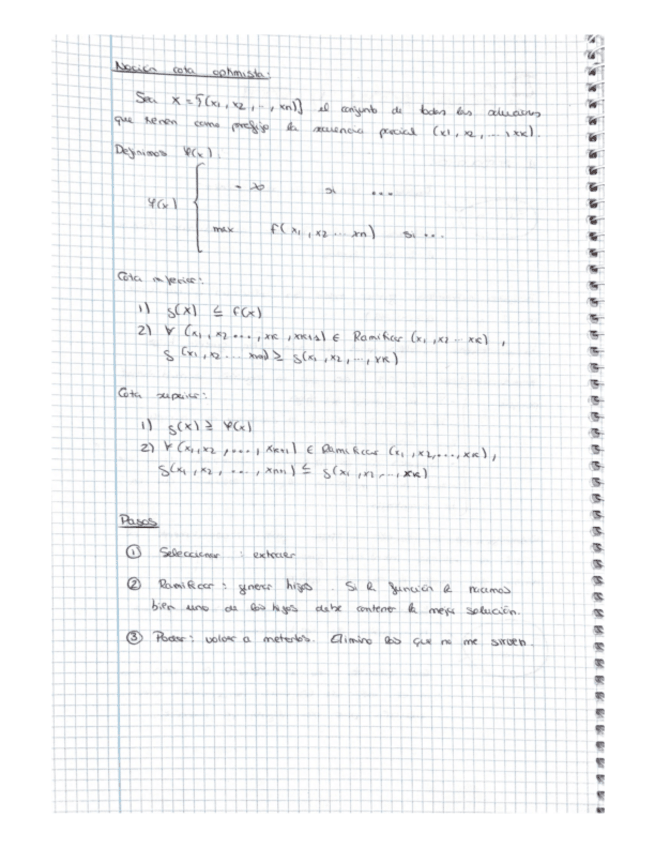 Noción cota optimista:
Sea X = {(x1, x2, .., xn)} el conjunto de todas las soluciones
que tienen como prefijo la secuencia parcial (x1, x2, ..., xk).
Definimos φ(x).
φ(x) { - ∞ si ...
max f(x1, x2 ... xn) si ...
Cota inferior:
1) g(x) ≤ f(x)
2) ∀ (x1, x2 ..., xk, xk+1) ∈ Ramificar (x1, x2 ... xk),
g (x1, x2 ... xk+1) ≥ g(x1, x2, ..., xk)
Cota superior:
1) g(x) ≥ φ(x)
2) ∀ (x1, x2, ..., xk+1) ∈ Ramificar (x1, x2, ..., xk),
g(x1, x2, ..., xk+1) ≤ g(x1, x2, ..., xk)
Pasos
① Seleccionar : extraer
② Ramificar : generar hijos. Si la función la hacemos
bien uno de los hijos debe contener la mejor solución.
③ Podar : volver a meterlos. Elimino los que no me sirven.